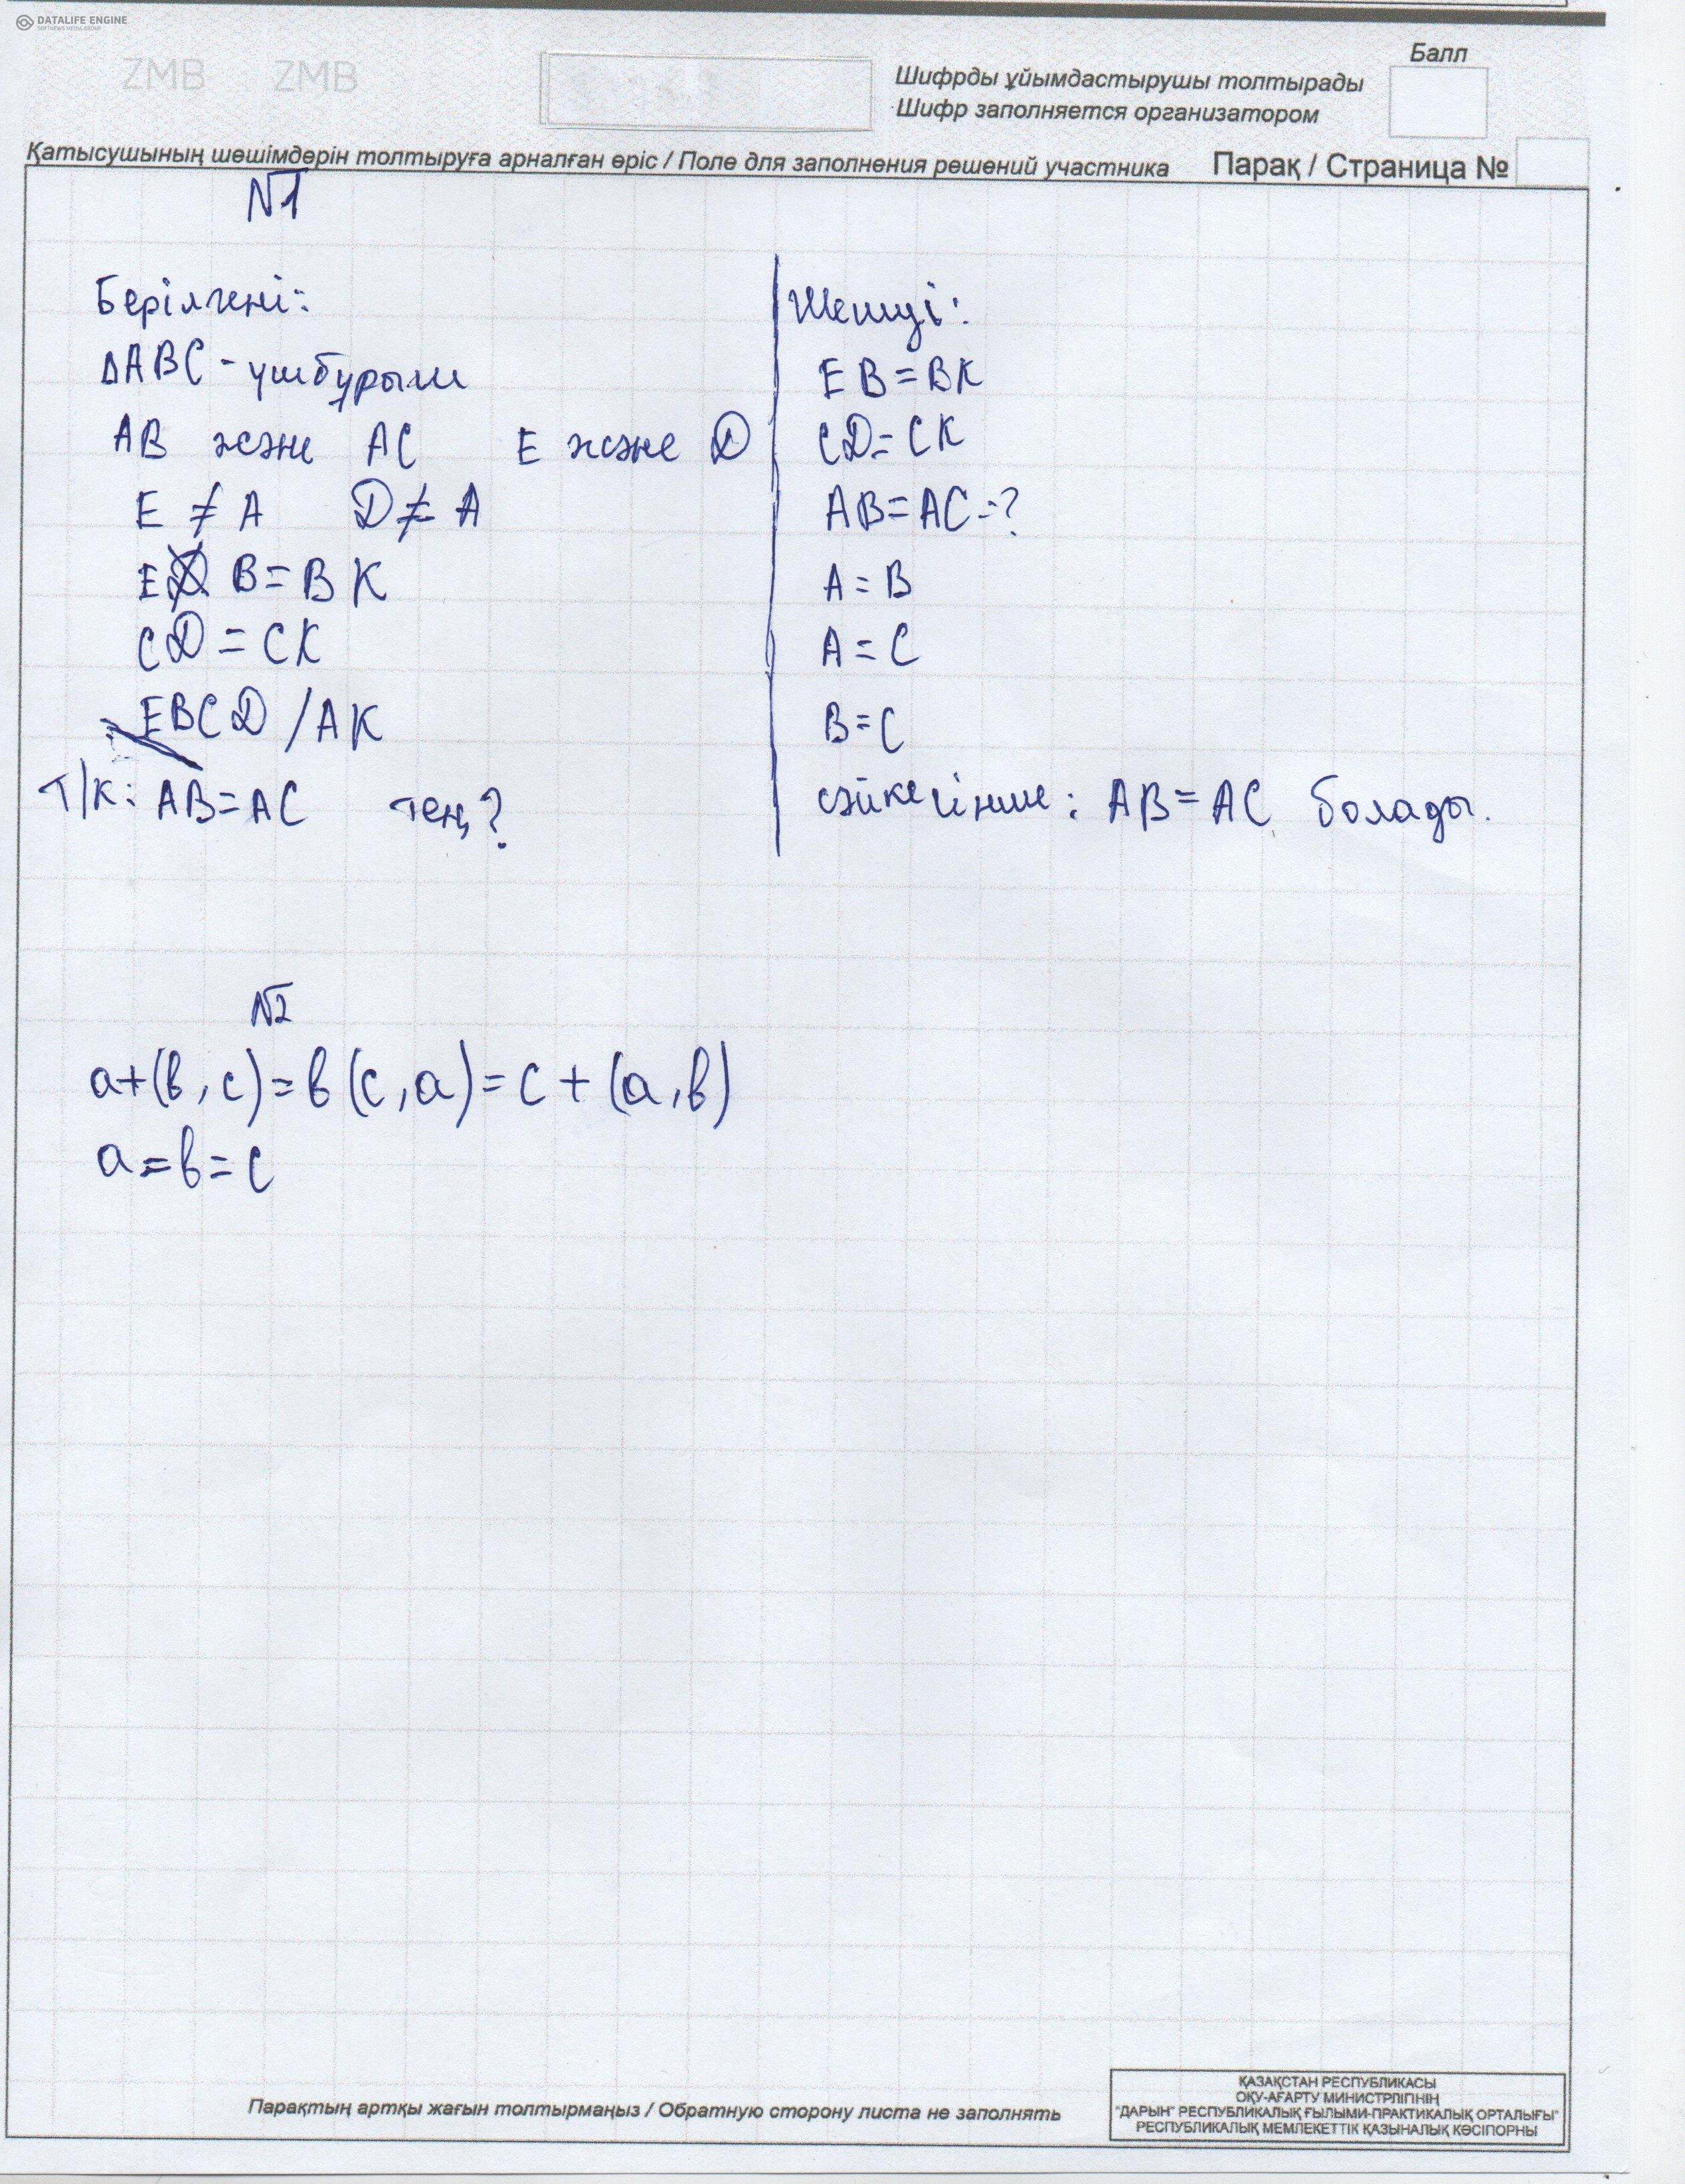 DATALIFE ENGINE
SOFTNEWS MEDIA GROUP
ZMB ZMB
Балл
Шифрды ұйымдастырушы толтырады
Шифр заполняется организатором
Қатысушының шешімдерін толтыруға арналған өріс / Поле для заполнения решений участника
Парақ / Страница №
№1
Берілгені:
ΔABC - үшбұрыш
AB және AC E және D
E ≠ A D ≠ A
E B = BK
CD = CK
EBCD / AK
Т/К: AB = AC тең?
Шешуі:
EB = BK
CD = CK
AB = AC - ?
A = B
A = C
B = C
сәйкесінше: AB = AC болады.
№2
a+(b,c)=b(c,a)=c+(a,b)
a=b=c
Парақтың артқы жағын толтырмаңыз / Обратную сторону листа не заполнять
ҚАЗАҚСТАН РЕСПУБЛИКАСЫ
ОҚУ-АҒАРТУ МИНИСТРЛІГІНІҢ
"ДАРЫН" РЕСПУБЛИКАЛЫҚ ҒЫЛЫМИ-ПРАКТИКАЛЫҚ ОРТАЛЫҒЫ"
РЕСПУБЛИКАЛЫҚ МЕМЛЕКЕТТІК ҚАЗЫНАЛЫҚ КӘСІПОРНЫ